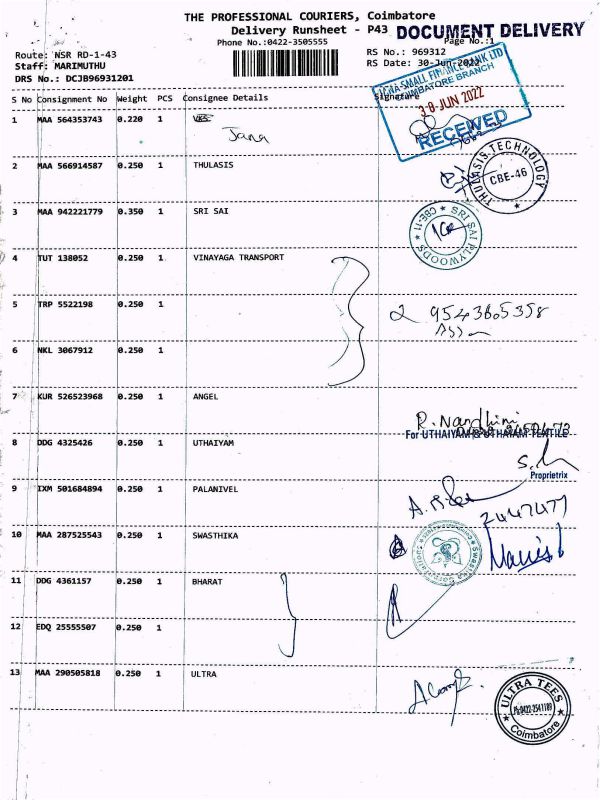 THE PROFESSIONAL COURIERS, Coimbatore
Delivery Runsheet - P43 DOCUMENT DELIVERY
Phone No.:0422-3505555 Page No.:1
Route: NSR RD-1-43 RS No.: 969312
Staff: MARIMUTHU RS Date: 30-Jun-2022
DRS No.: DCJB96931201
JANA SMALL FINANCE BANK LTD
COIMBATORE BRANCH
30 JUN 2022
RECEIVED
S No Consignment No Weight PCS Consignee Details Signature
1 MAA 564353743 0.220 1
Jana
2 MAA 566914587 0.250 1 THULASIS
THULASIS TECHNOLOGY CBE-46
3 MAA 942221779 0.350 1 SRI SAI
SRI SAI PLYWOODS CBE-11
4 TUT 138052 0.250 1 VINAYAGA TRANSPORT
5 TRP 5522198 0.250 1
9543605358
6 NKL 3067912 0.250 1
7 KUR 526523968 0.250 1 ANGEL
R. Nandhini
For UTHAIYAM & UTHAIYAM TEXTILE
8 DDG 4325426 0.250 1 UTHAIYAM
Proprietrix
9 IXM 501684894 0.250 1 PALANIVEL
2447477
10 MAA 287525543 0.250 1 SWASTHIKA
11 DDG 4361157 0.250 1 BHARAT
12 EDQ 25555507 0.250 1
13 MAA 290505818 0.250 1 ULTRA
ULTRA TEES
Ph:0422-2541189
Coimbatore